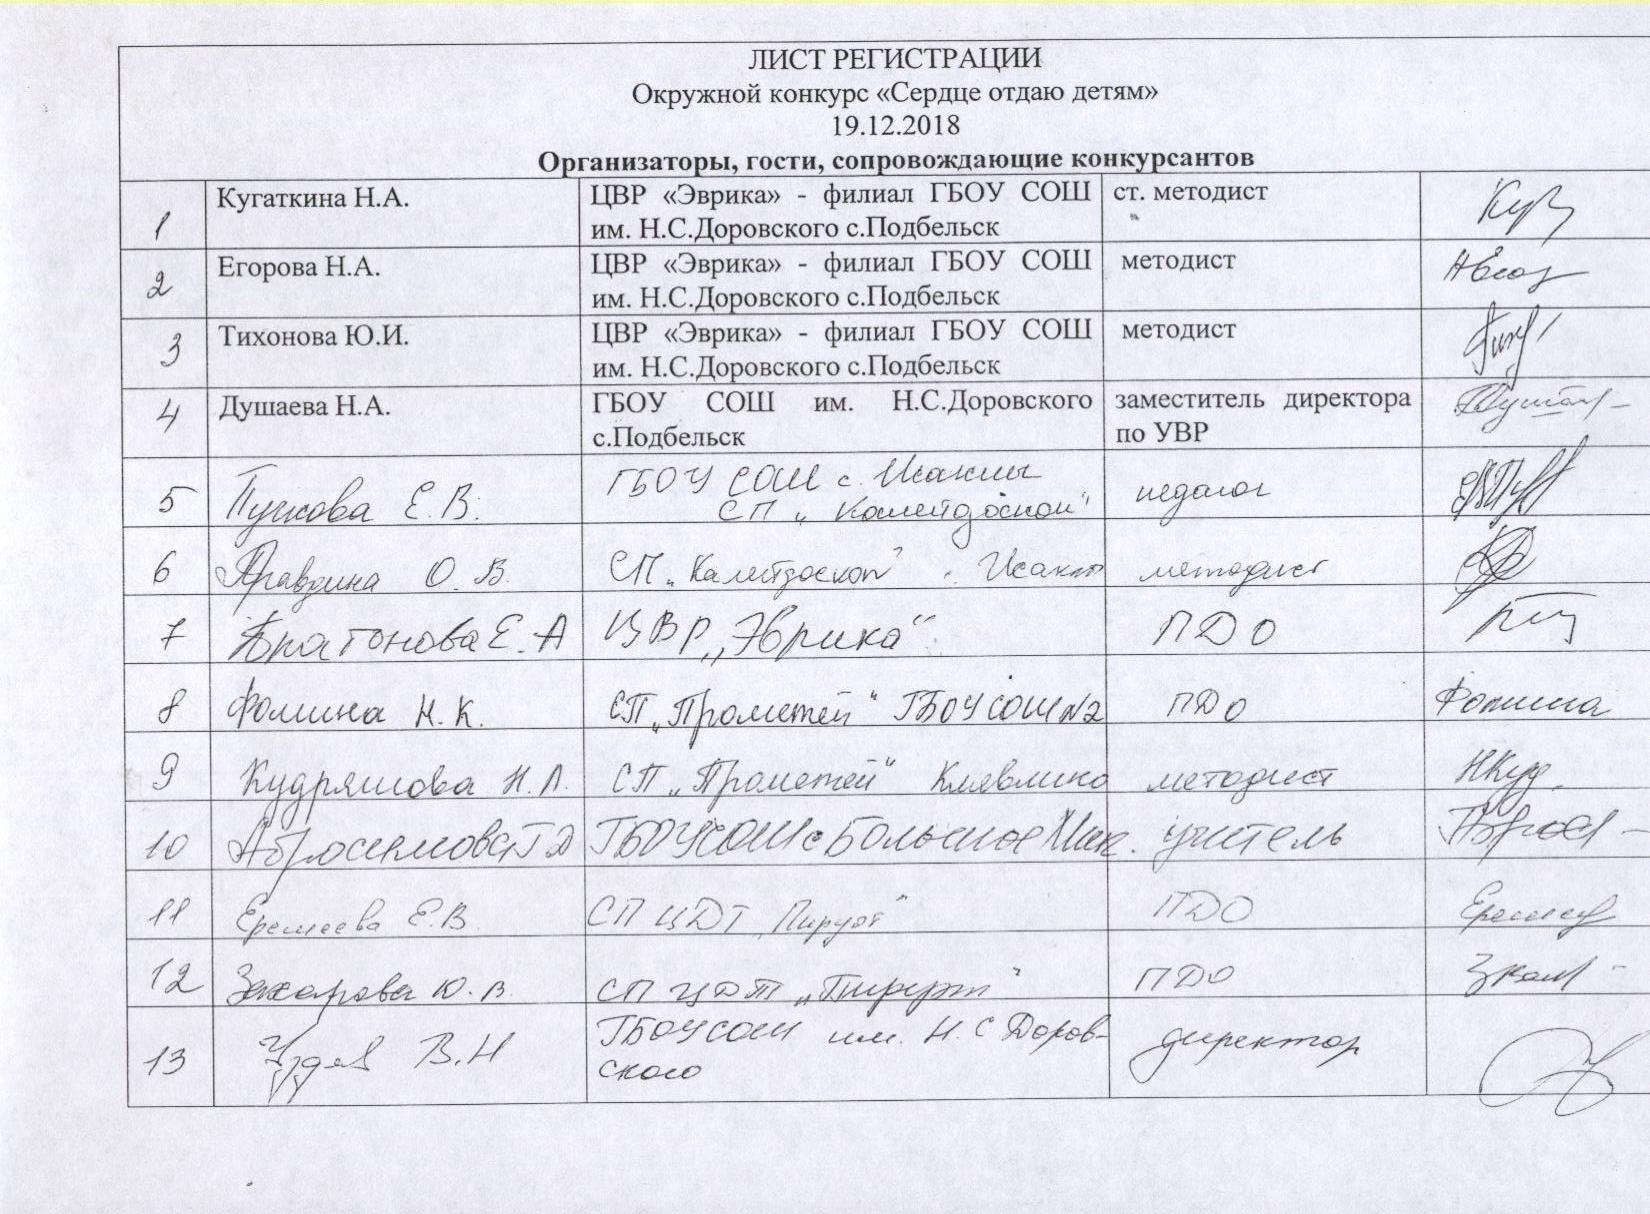 ЛИСТ РЕГИСТРАЦИИ
Окружной конкурс «Сердце отдаю детям»
19.12.2018
Организаторы, гости, сопровождающие конкурсантов
1 Кугаткина Н.А. ЦВР «Эврика» - филиал ГБОУ СОШ им. Н.С.Доровского с.Подбельск ст. методист
2 Егорова Н.А. ЦВР «Эврика» - филиал ГБОУ СОШ им. Н.С.Доровского с.Подбельск методист
3 Тихонова Ю.И. ЦВР «Эврика» - филиал ГБОУ СОШ им. Н.С.Доровского с.Подбельск методист
4 Душаева Н.А. ГБОУ СОШ им. Н.С.Доровского с.Подбельск заместитель директора по УВР
5 Е.В. ГБОУ СОШ с. Исаклы СП „Калейдоскоп" педагог
6 Правдина О.В. СП „Калейдоскоп" Исаклы методист
7 Е.А ЦВР „Эврика" ПДО
8 Фомина Н.К. СП „Прометей" ГБОУ СОШ №2 ПДО Фомина
9 Кудряшова Н.Л. СП „Прометей" Клявлино методист НКуд
10 Абросимова Т.Д ГБОУ СОШ с Большое Мик. учитель
11 Еремеева Е.В. СП ЦДТ „Пируэт" ПДО
12 Захарова Ю.В. СП ЦДТ „Пируэт" ПДО
13 В.Н ГБОУ СОШ им. Н.С Доров-
ского директор